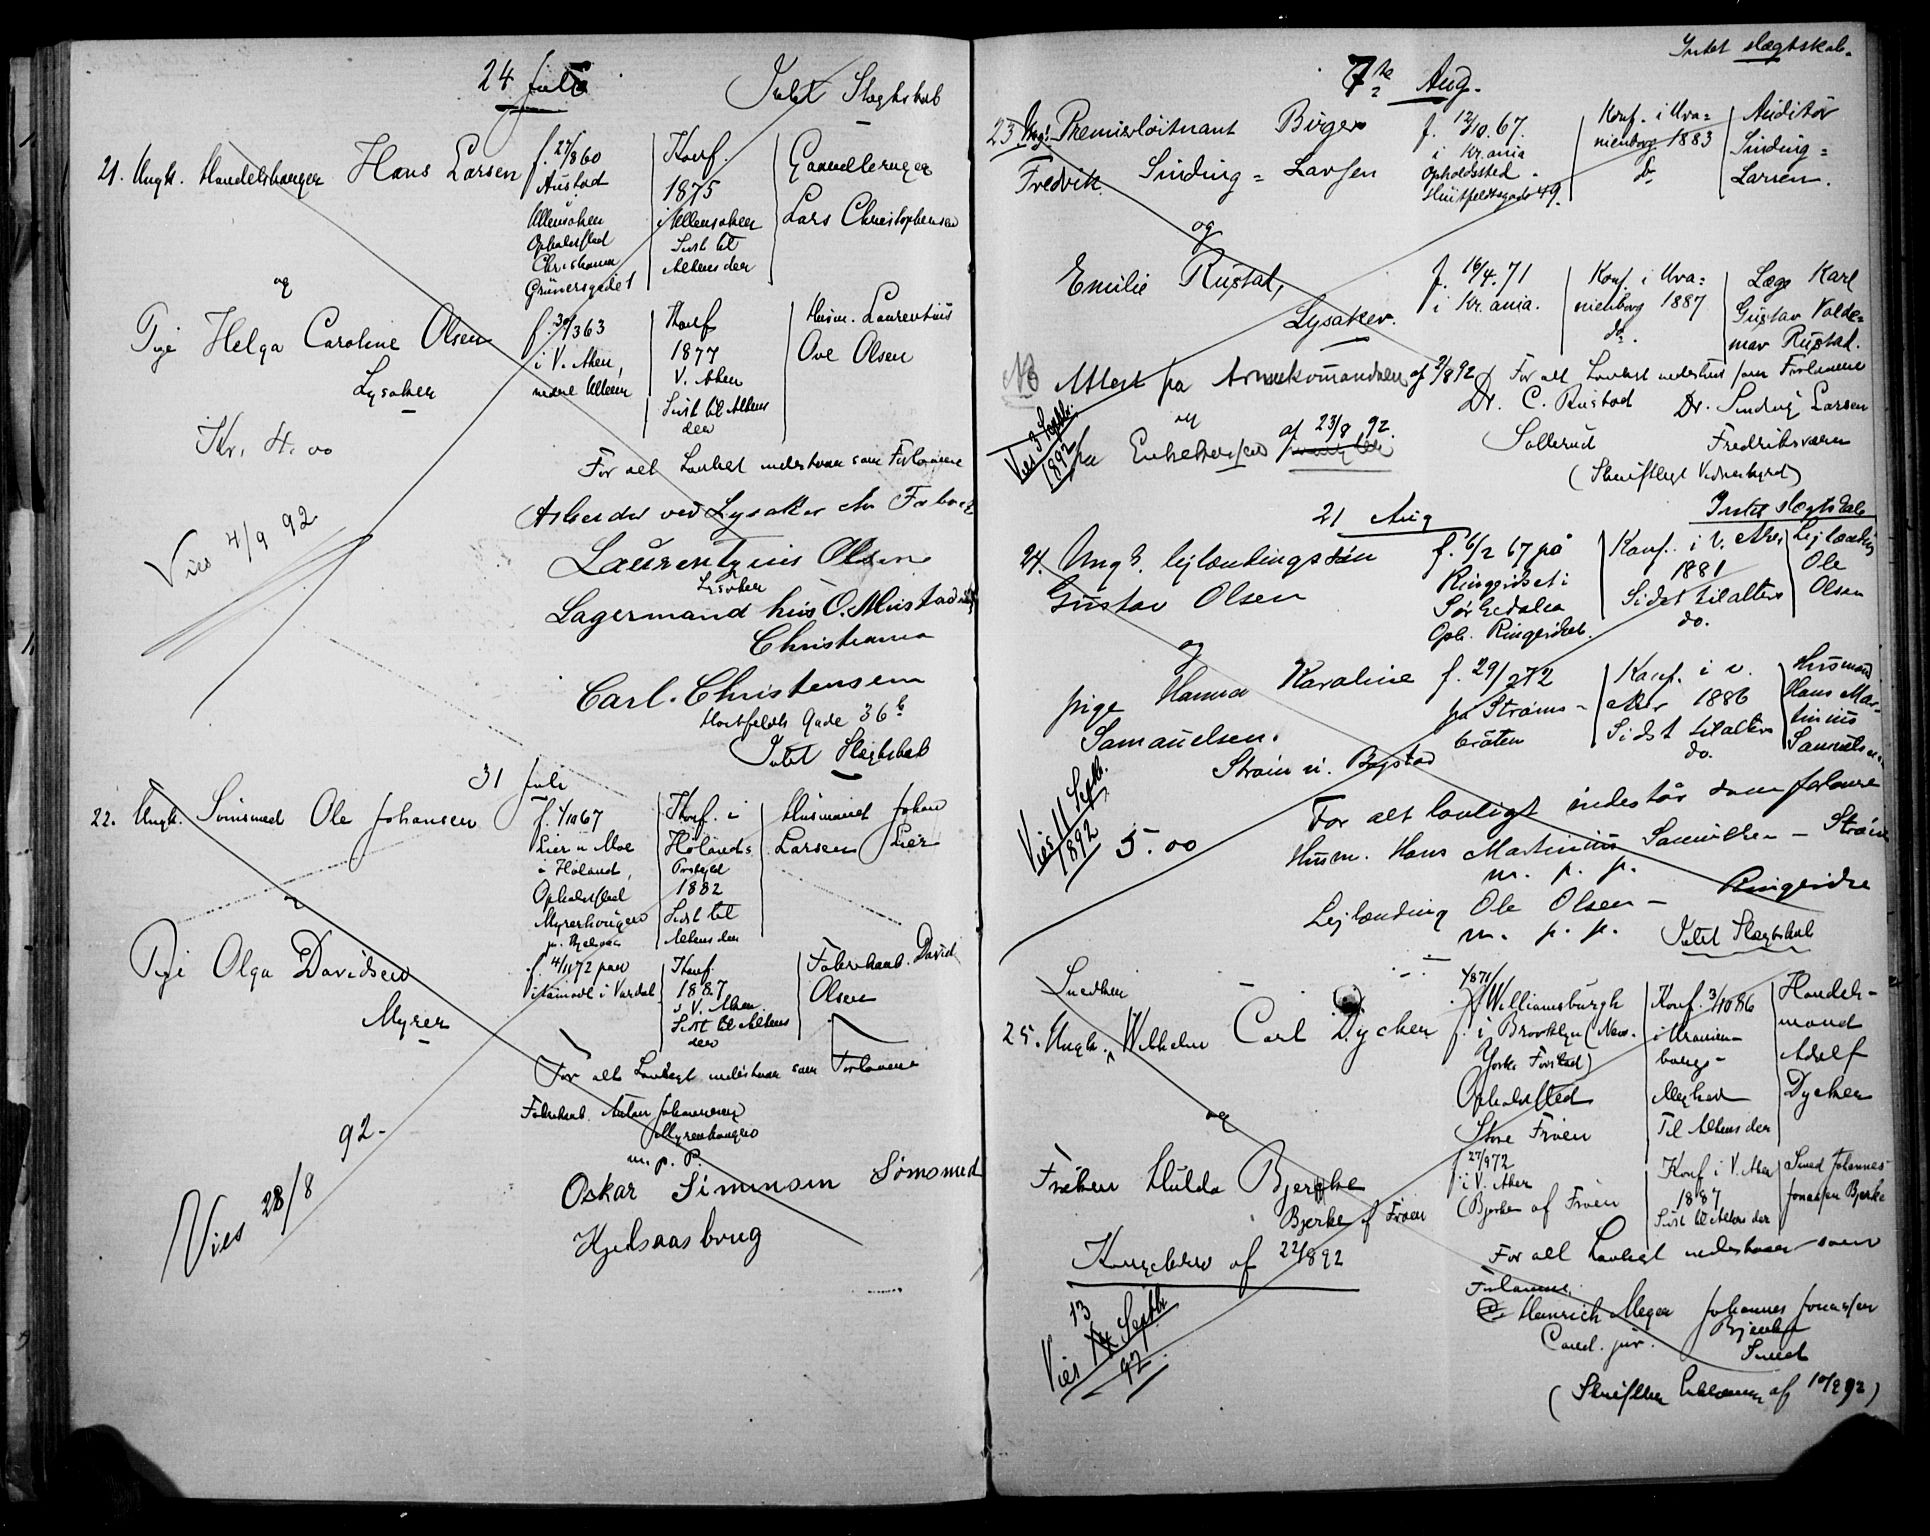 24 Juli
Intet Slægtskab
21. Ungk. Handelskonger Hans Larsen
f. 27/8 60
Austad
Ullensaken
Opholdssted
Christiania
Grünersgade 1
Konf.
1875
i Ullensaken
Sidst til
Altens den
Gaardbruger
Lars Christophersen
og
Pige Helga Caroline Olsen
Lysaker
f. 30/3 63
i V. Aker,
nedre Ullern
Konf
1877
V. Aker
Sidst til Altens
den
Husm. Laurentius
Ove Olsen
Kr. 4.00
For alt Lovligt indestaar som Forlovere
Arbeider ved Lysaker
Laurentzius Olsen
Lysaker
Lagermand hus O. Mustad
Christiania
Carl. Christensen
Huitfeldts Gade 36 b
Viet 4/9 92
Intet Slægtskab
31 Juli
22. Ungk. Sømsmed Ole Johansen
f. 1/10 67
Lier u Moe
i Høland,
Opholdssted
Myrerhougen
p. Kjelsaas
Konf. i
Hølands
Præstegjeld
1882
Sidst til
Altens den
Husmand Johan
Larsen Lier
Pige Olga Davidsen
Myrer
f. 4/11 72 paa
i Vardal
Konf.
1887
i V. Aker
Sidst til Altens
den
Fabrikarb. David
Olsen
For alt Lovligt indestaar som Forlovere
Fabrikarb. Anton Johannesen
Myrerhougen
m. p. P.
Oskar Simensen Sømsmed
Kjelsaasbrug
Viet 28/8 92-
Intet slægtskab.
7de Aug.
23. Ungk. Premierløitnant Birger
Fredrik Sinding = Larsen
f. 12/10. 67.
i Kr.ania
Opholdssted
Huitfeldtsgade 49.
Konf. i Ura=
nienborg 1883
do
Auditør
Sinding=
Larsen.
og
Emilie Rustad,
Lysaker.
f. 16/4. 71
i Kr.ania.
Konf. i Ura=
nienborg 1887
do.
Læge Karl
Gustav Valde=
mar Rustad.
NB Attest fra Armekommandoen af 2/8 92
og
fra Enkekassen af 23/8 92.
For alt Lovligt indestaar som Forlovere
Dr. C. Rustad Dr. Sinding Larsen
Sollerud Fredriksværn
(Skriftligt Vidnesbyrd)
Viet 3 Septbr.
1892
21 Aug
Intet slægtskab
24. Ungk. lejlændingssøn
Gustav Olsen
f. 6/2 67 på
Ringeriket i
Sørkedalen
Oph. Ringeriket.
Konf. i V. Aker
1881
Sidst til alters
do.
Lejlænding
Ole
Olsen
og
pige Hanna Karoline
Samuelsen.
Strøm u. Bogstad
f. 29/2 72
på Strøms-
bråten
Konf. i v.
aker 1886
Sidst til alters
do.
Husmand
Hans Mar-
tinius
Samuelsen
For alt lovligt indestår som forlovere
Husm. Hans Martinius Samuelsen - Strøm
m. p. p.
Lejlænding Ole Olsen - Ringeriket
m. p. p.
Viet 11 Septb.
1892
5.00
Intet Slægtskab
Snedker
25. Ungk. Wilhelm Carl Dycker
1871
f. i Williamsburgh
i Brooklyn (New-
Yorks Forstad)
Opholdssted
Store Frøen
Konf. 3/10 86
i Uranien-
borg-
Menighed
Til Altens den
Handels-
mand
Adolf
Dycker
og
Frøken Hulda Bjerke
Bjerke af Frøen
f 27/9 72
i V. Aker
(Bjerke af Frøen
Konf i V. Aker
1887
Sidst til Altens den
Smed Johannes
Jonassen Bjerke
Kongebrev af 22/8 92
For alt Lovligt indestaar som
Forlovere.
Heinrich Meyer
Cand. jur.
Johannes Jonassen
Bjerke
Smed
(Skriftlig Erklæring af 10/8 92)
Viet 13 Septbr
92.